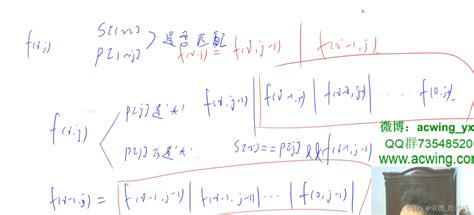 f(i,j) S[1~i] P[1~j] 是否匹配 f(i,j) = f(i,j-1) | f(i-1,j)
f(i,j) P[j]是'*' f(i,j-1) | f(i-1,j) | f(i-2,j) | ... f(0,j)
P[j]不是'*' S[i]==P[j] && f(i-1,j-1)
f(i-1,j) = f(i-1,j-1) | f(i-2,j-1) | ... | f(0,j-1)
微博：acwing_yx
QQ群73548520
www.acwing.com